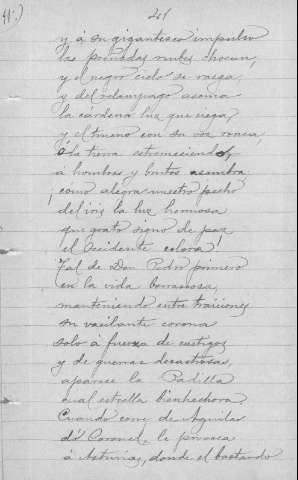 41.) 41
y a su gigantesco impulso
las preñadas nubes chocan,
y el negro cielo se rasga,
y del relampago asoma
la cárdena luz que ciega,
y el trueno con su voz ronca,
la tierra estremeciendo,
á hombres y brutos asombra
¡como alegra nuestro pecho
del iris la luz hermosa
que grato signo de paz
el Occidente colora!
Tal de Don Pedro primero
en la vida borrascosa,
manteniendo entre traiciones
su vacilante corona
solo á fuerza de castigos
y de guerras desastrosas,
aparece la Padilla
cual estrella bienhechora.
Cuando corre de Aguilar
dó Coronel le provoca
á Asturias, donde el bastardo